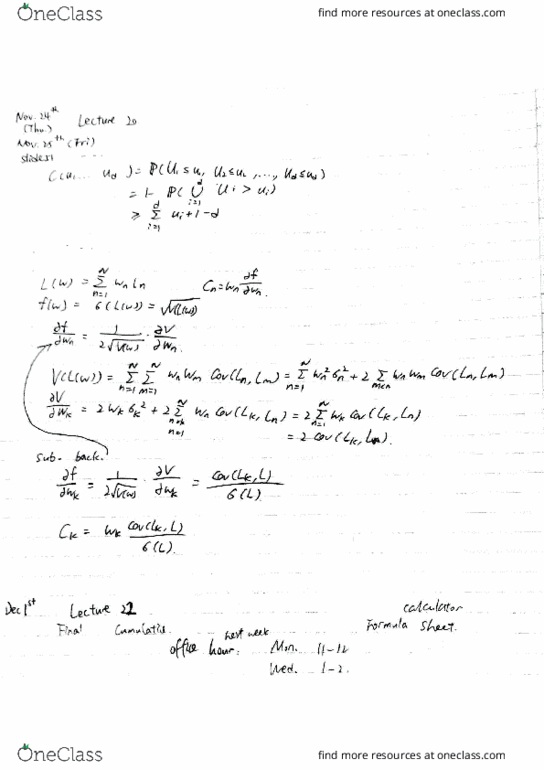 OneClass
find more resources at oneclass.com
Nov. 24th Lecture 20
(Thu.)
Nov. 25th (Fri)
slides1
C(u1 ... ud) = P(U1 ≤ u1, U2 ≤ u2, ..., Ud ≤ ud)
= 1 - P(⋃_{i=1}^{d} Ui > ui)
≥ Σ_{i=1}^{d} ui + 1 - d
L(w) = Σ_{n=1}^{N} wn Ln Cn = wn ∂f/∂wn.
f(w) = б(L(w)) = √V(L(w))
∂f/∂wn = 1/(2√V(L(w))) · ∂V/∂wn.
V(L(w)) = Σ_{n=1}^{N} Σ_{m=1}^{N} wn wm Cov(Ln, Lm) = Σ_{n=1}^{N} wn² бn² + 2 Σ_{m<n} wn wm Cov(Ln, Lm)
∂V/∂wk = 2 wk бk² + 2 Σ_{n≠k, n=1}^{N} wn Cov(Lk, Ln) = 2 Σ_{n=1}^{N} wk Cov(Lk, Ln)
= 2 Cov(Lk, L).
sub- back.
∂f/∂wk = 1/(2√V(w)) · ∂V/∂wk = Cov(Lk, L)/б(L)
Ck = wk Cov(Lk, L)/б(L).
Dec 1st Lecture 22 calculator
Final Cumulative Formula Sheet.
next week
office hour: Mon. 11-12
Wed. 1-2.
OneClass
find more resources at oneclass.com